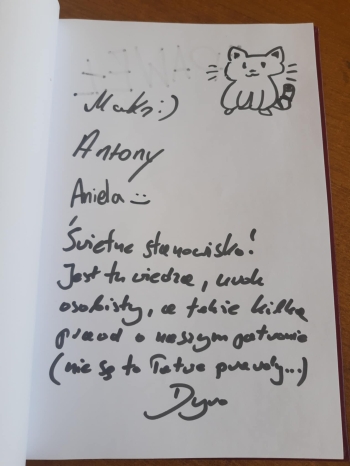 Maks :)
Antony
Aniela :)
Świetne stanowisko!
Jest tu wiedza, urok
osobisty, a także kilka
prawd o naszym patronie
(nie są to łatwe prawdy...)